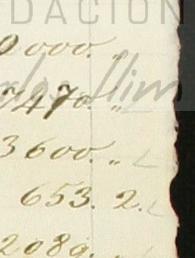 DACIÓN
0000. "
7470. "
3600. "
653. 2.
2089.